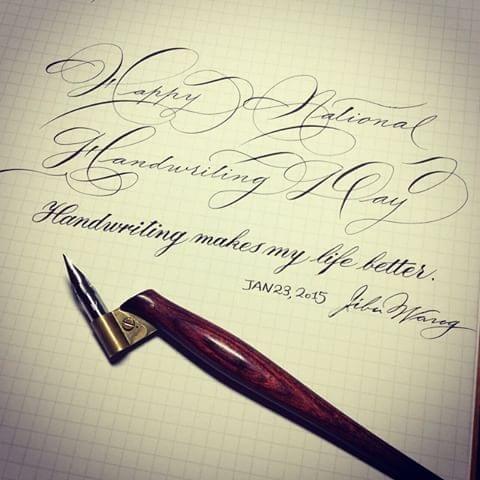 Happy National
Handwriting Day
Handwriting makes my life better.
JAN 23, 2015 Jibu Wang